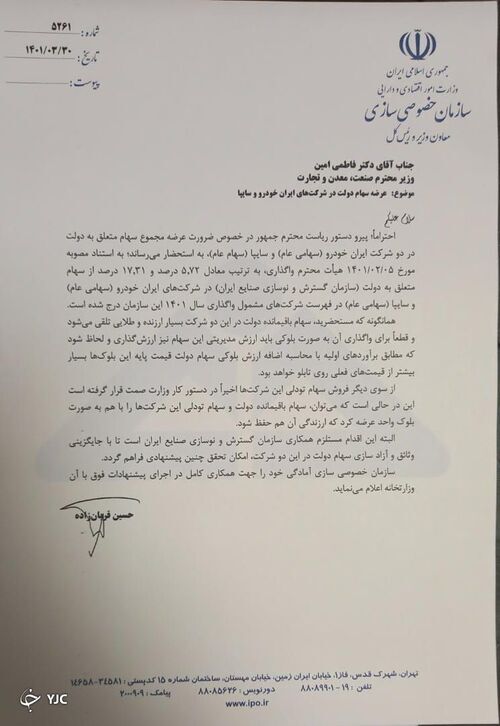 شماره: ۵۲۶۱
تاریخ: ۱۴۰۱/۰۳/۳۰
پیوست:
جمهوری اسلامی ایران
وزارت امور اقتصادی و دارایی
سازمان خصوصی سازی
معاون وزیر و رئیس کل
جناب آقای دکتر فاطمی امین
وزیر محترم صنعت، معدن و تجارت
موضوع: عرضه سهام دولت در شرکت‌های ایران خودرو و سایپا
سلام علیکم
احتراماً؛ پیرو دستور ریاست محترم جمهور در خصوص ضرورت عرضه مجموع سهام متعلق به دولت
در دو شرکت ایران خودرو (سهامی عام) و سایپا (سهام عام)، به استحضار می‌رساند؛ به استناد مصوبه
مورخ ۱۴۰۱/۰۲/۰۵ هیأت محترم واگذاری، به ترتیب معادل ۵.۷۲ درصد و ۱۷.۳۱ درصد از سهام
متعلق به دولت (سازمان گسترش و نوسازی صنایع ایران) در شرکت‌های ایران خودرو (سهامی عام)
و سایپا (سهامی عام) در فهرست شرکت‌های مشمول واگذاری سال ۱۴۰۱ این سازمان درج شده است.
همانگونه که مستحضرید، سهام باقیمانده دولت در این دو شرکت بسیار ارزنده و طلایی تلقی می‌شود
و قطعاً برای واگذاری آن به صورت بلوکی باید ارزش مدیریتی این سهام نیز ارزش‌گذاری و لحاظ شود
که مطابق برآوردهای اولیه با محاسبه اضافه ارزش بلوکی سهام دولت قیمت پایه این بلوک‌ها بسیار
بیشتر از قیمت‌های فعلی روی تابلو خواهد بود.
از سوی دیگر فروش سهام تودلی این شرکت‌ها اخیراً در دستور کار وزارت صمت قرار گرفته است
این در حالی است که می‌توان، سهام باقیمانده دولت و سهام تودلی این شرکت‌ها را با هم به صورت
بلوک واحد عرضه کرد که ارزندگی آن هم حفظ شود.
البته این اقدام مستلزم همکاری سازمان گسترش و نوسازی صنایع ایران است تا با جایگزینی
وثائق و آزاد سازی سهام دولت در این دو شرکت، امکان تحقق چنین پیشنهادی فراهم گردد.
سازمان خصوصی سازی آمادگی خود را جهت همکاری کامل در اجرای پیشنهادات فوق با آن
وزارتخانه اعلام می‌نماید.
حسین قربان‌زاده
تهران، شهرک قدس، فاز۱، خیابان ایران زمین، خیابان مهستان، ساختمان شماره ۱۵ کدپستی: ۳۴۵۸۱-۱۴۶۵۸
تلفن: ۱۹-۸۸۰۸۹۹۰۱ دورنویس: ۸۸۰۸۵۶۲۶ پیامک: ۲۰۰۰۹۰۹
www.ipo.ir
YJC